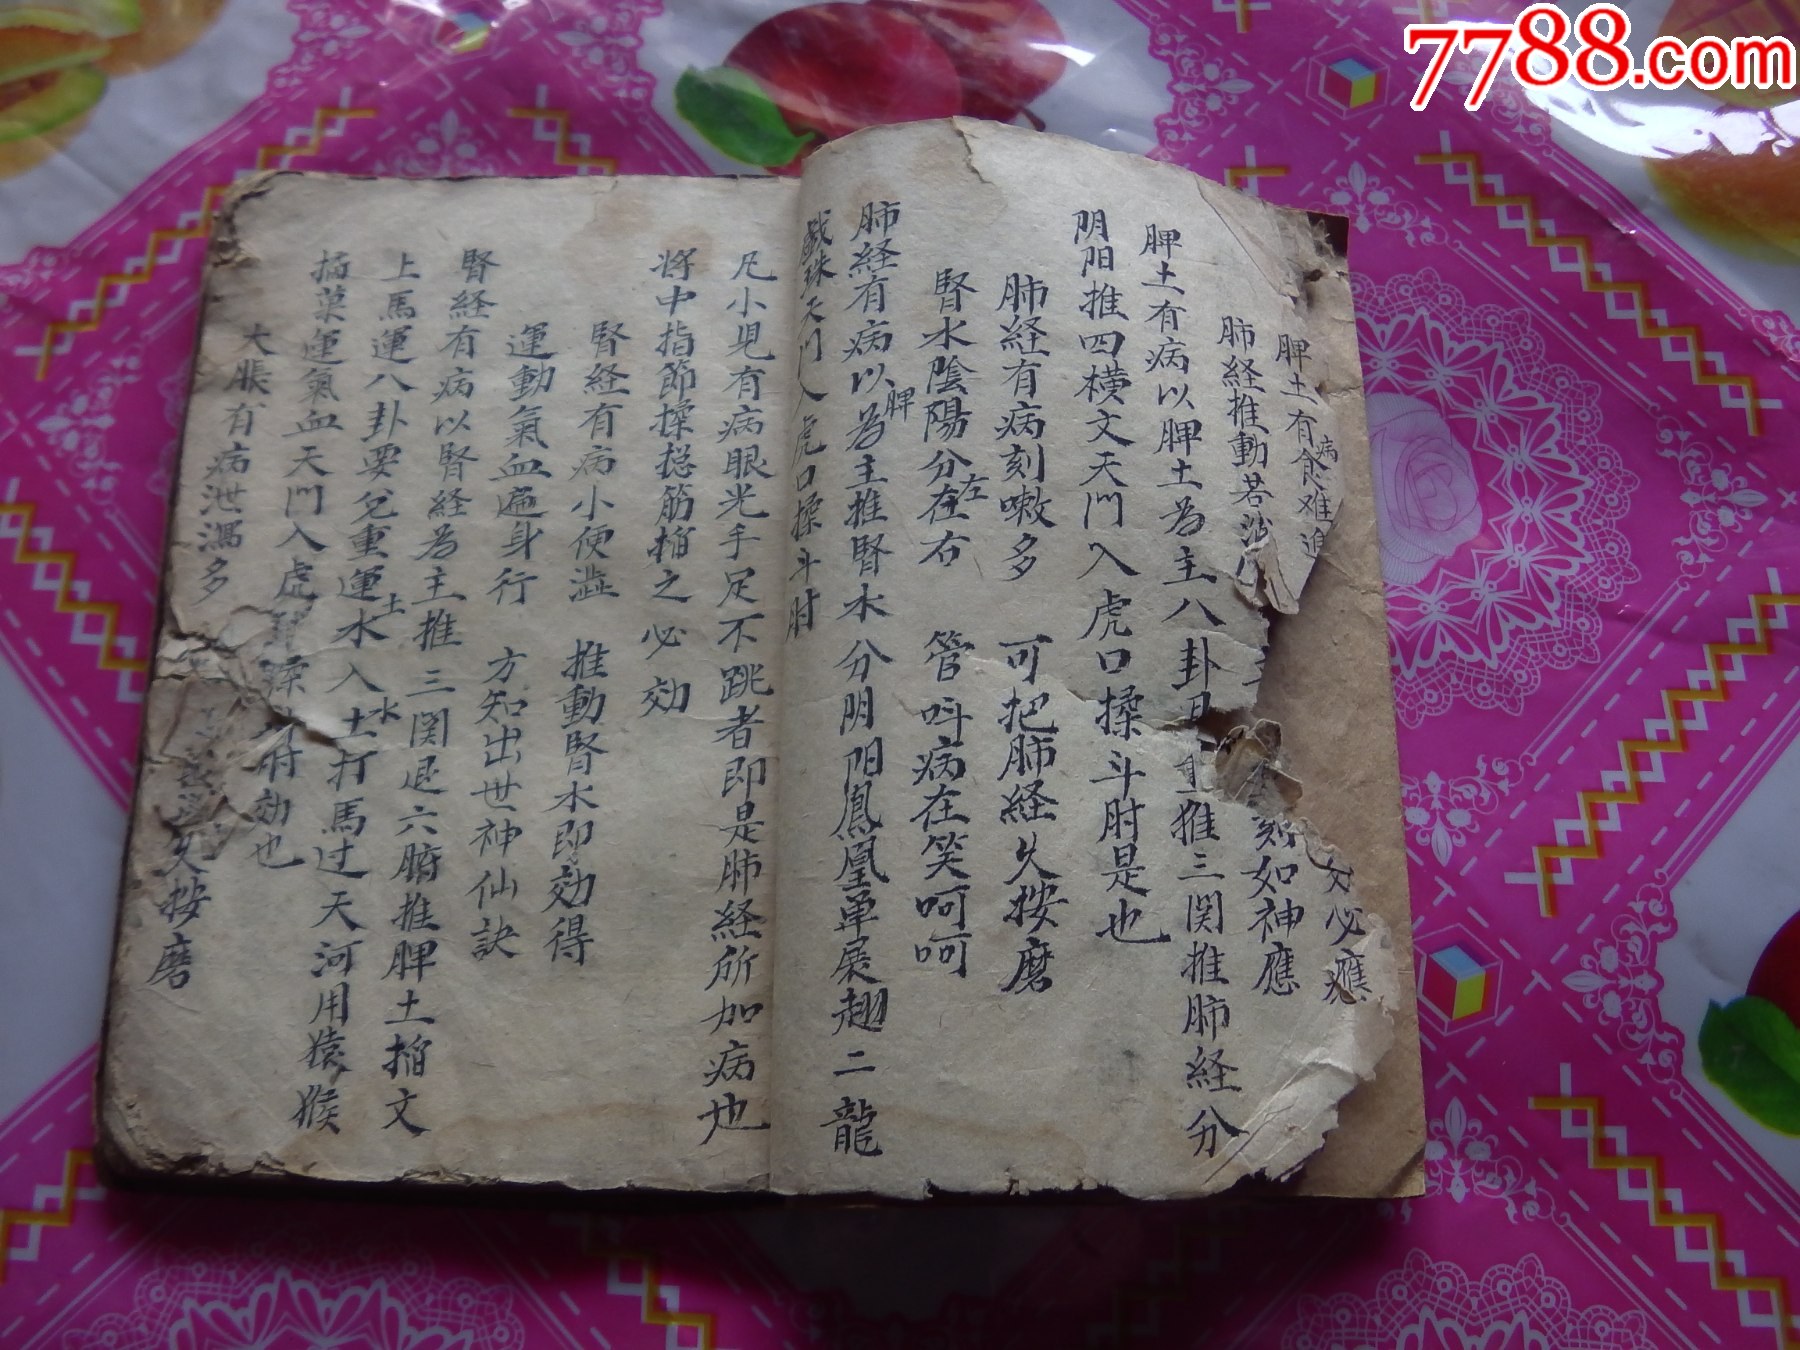 7788.com
脾土有病食难進
文必應
肺経推動若
刻如神應
脾土有病以脾土為主八卦 重推三関推肺経分
阴阳推四横文天門入虎口揉斗肘是也
肺経有病刻嗽多 可把肺経久按磨
腎水陰陽分在左右 管叫病在笑呵呵
肺経有病以脾為主推腎水分阴阳鳳凰單展翅二龍
戲珠天門入虎口揉斗肘
凡小児有病眼光手足不跳者即是肺経所加病也
将中指節揉捻筋掐之必効
腎経有病小便澁 推動腎水即効得
運動氣血遍身行 方知出世神仙訣
腎経有病以腎経為主推三関退六腑推脾土掐文
上馬運八卦要兌重運水土入土水打馬过天河用猿猴
摘菓運氣血天門入虎 揉 肘効也
大脹有病泄瀉多 久按磨